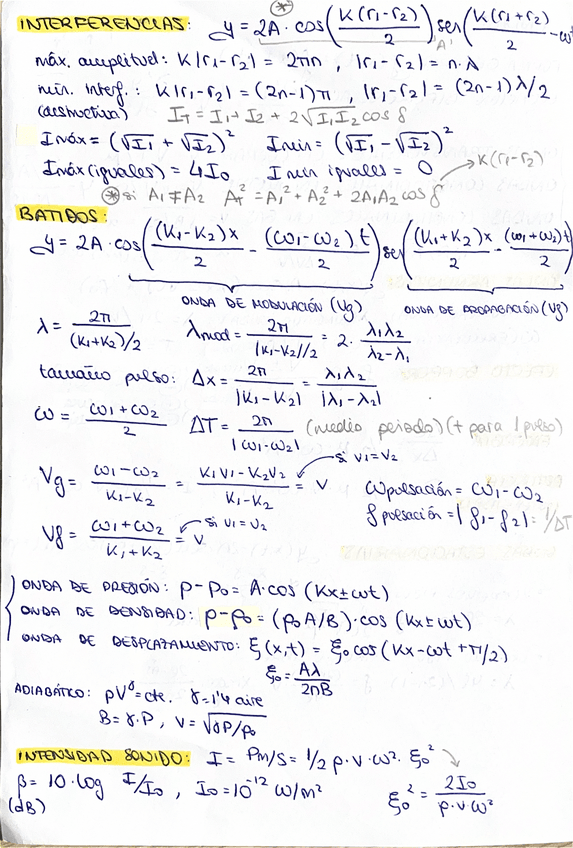 INTERFERENCIAS: y = 2A · cos(K(r1-r2)/2) sen(K(r1+r2)/2 - ω
⊛ 'A'
máx. amplitud: K|r1-r2| = 2πn , |r1-r2| = n·λ
mín. interf.: K|r1-r2| = (2n-1)π , |r1-r2| = (2n-1) λ/2
(destructiva) I_T = I1 + I2 + 2√(I1 I2) cos δ
Imáx = (√I1 + √I2)² Imin = (√I1 - √I2)²
Imáx(iguales) = 4I0 Imin iguales = 0 K(r1-r2)
⊛ si A1 ≠ A2 A_T² = A1² + A2² + 2A1A2 cos δ
BATIDOS:
y = 2A · cos((K1-K2)x/2 - (ω1-ω2)t/2) sen((K1+K2)x/2 - (ω1+ω2)t/2
ONDA DE MODULACIÓN (Vg) ONDA DE PROPAGACIÓN (Vf)
λ = 2π/(K1+K2)/2 λmod = 2π/|K1-K2|/2 = 2 · λ1λ2/λ2-λ1
tamaño pulso: Δx = 2π/|K1-K2| = λ1λ2/|λ1-λ2|
ω = ω1+ω2/2 ΔT = 2π/|ω1-ω2| (medio periodo) (t para 1 pulso)
Vg = ω1-ω2/K1-K2 = K1V1-K2V2/K1-K2 = V si v1=v2 ωpulsación = ω1-ω2
Vf = ω1+ω2/K1+K2 = V si v1=v2 fpulsación = |f1-f2| = 1/ΔT
ONDA DE PRESIÓN: p-p0 = A·cos (Kx±ωt)
ONDA DE DENSIDAD: ρ-ρ0 = (ρ0 A/B)·cos (Kx±ωt)
ONDA DE DESPLAZAMIENTO: ξ(x,t) = ξ0 cos(Kx-ωt+π/2)
ξ0 = Aλ/2πB
ADIABÁTICO: pV^γ = cte. γ=1'4 aire
B = γ·P , V = √(γP/ρ0)
INTENSIDAD SONIDO: I = Pm/S = 1/2 ρ·v·ω²·ξ0²
β = 10·log I/I0 , I0 = 10⁻¹² W/m² ξ0² = 2I0/ρ·v·ω²
(dB)